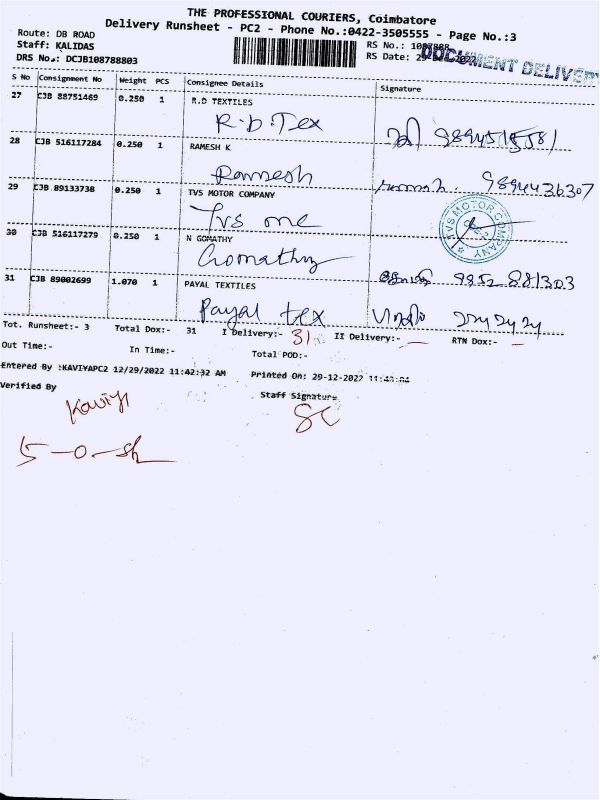 THE PROFESSIONAL COURIERS, Coimbatore
Delivery Runsheet - PC2 - Phone No.:0422-3505555 - Page No.:3
Route: DB ROAD
RS No.: 1087888
Staff: KALIDAS
RS Date: 29-Dec-2022
DOCUMENT DELIVERY
DRS No.: DCJB108788803
S No Consignment No Weight PCS Consignee Details Signature
27 CJB 88751469 0.250 1 R.D TEXTILES
R.D.Tex 9894515581
28 CJB 516117284 0.250 1 RAMESH K
Ramesh 9894436307
29 CJB 89133738 0.250 1 TVS MOTOR COMPANY
Tvs mc
TVS MOTOR COMPANY
30 CJB 516117279 0.250 1 N GOMATHY
Gomathy 9852 881303
31 CJB 89002699 1.070 1 PAYAL TEXTILES
Payal tex
Tot. Runsheet:- 3 Total Dox:- 31 I Delivery:- 31 II Delivery:- — RTN Dox:- —
Out Time:- In Time:- Total POD:-
Entered By :KAVIYAPC2 12/29/2022 11:42:32 AM Printed On: 29-12-2022 11:43:04
Verified By Staff Signature
Kaviya